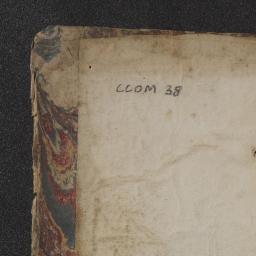 CCOM 38